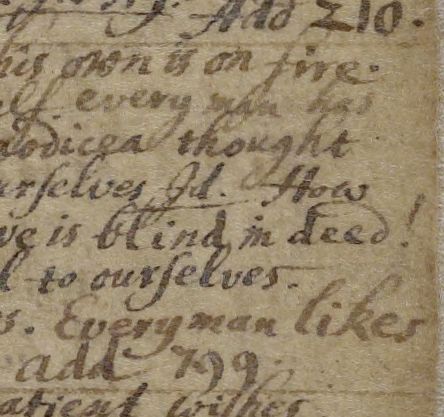 Add 210.
his own is on fire.
every man has
aodicea thought
urselves Id. How
ve is blind in deed!
l to ourselves.
s. Every man likes
add 799
atient wishes